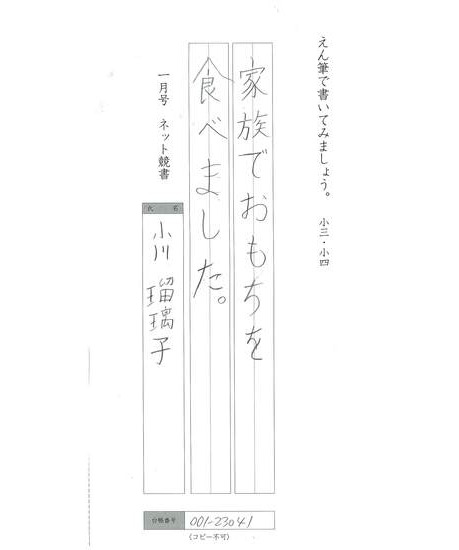 えん筆で書いてみましょう。 小三・小四
家族でおもちを
食べました。
一月号 ネット競書
氏名
小川 瑠璃子
台帳番号 001-23041
(コピー不可)